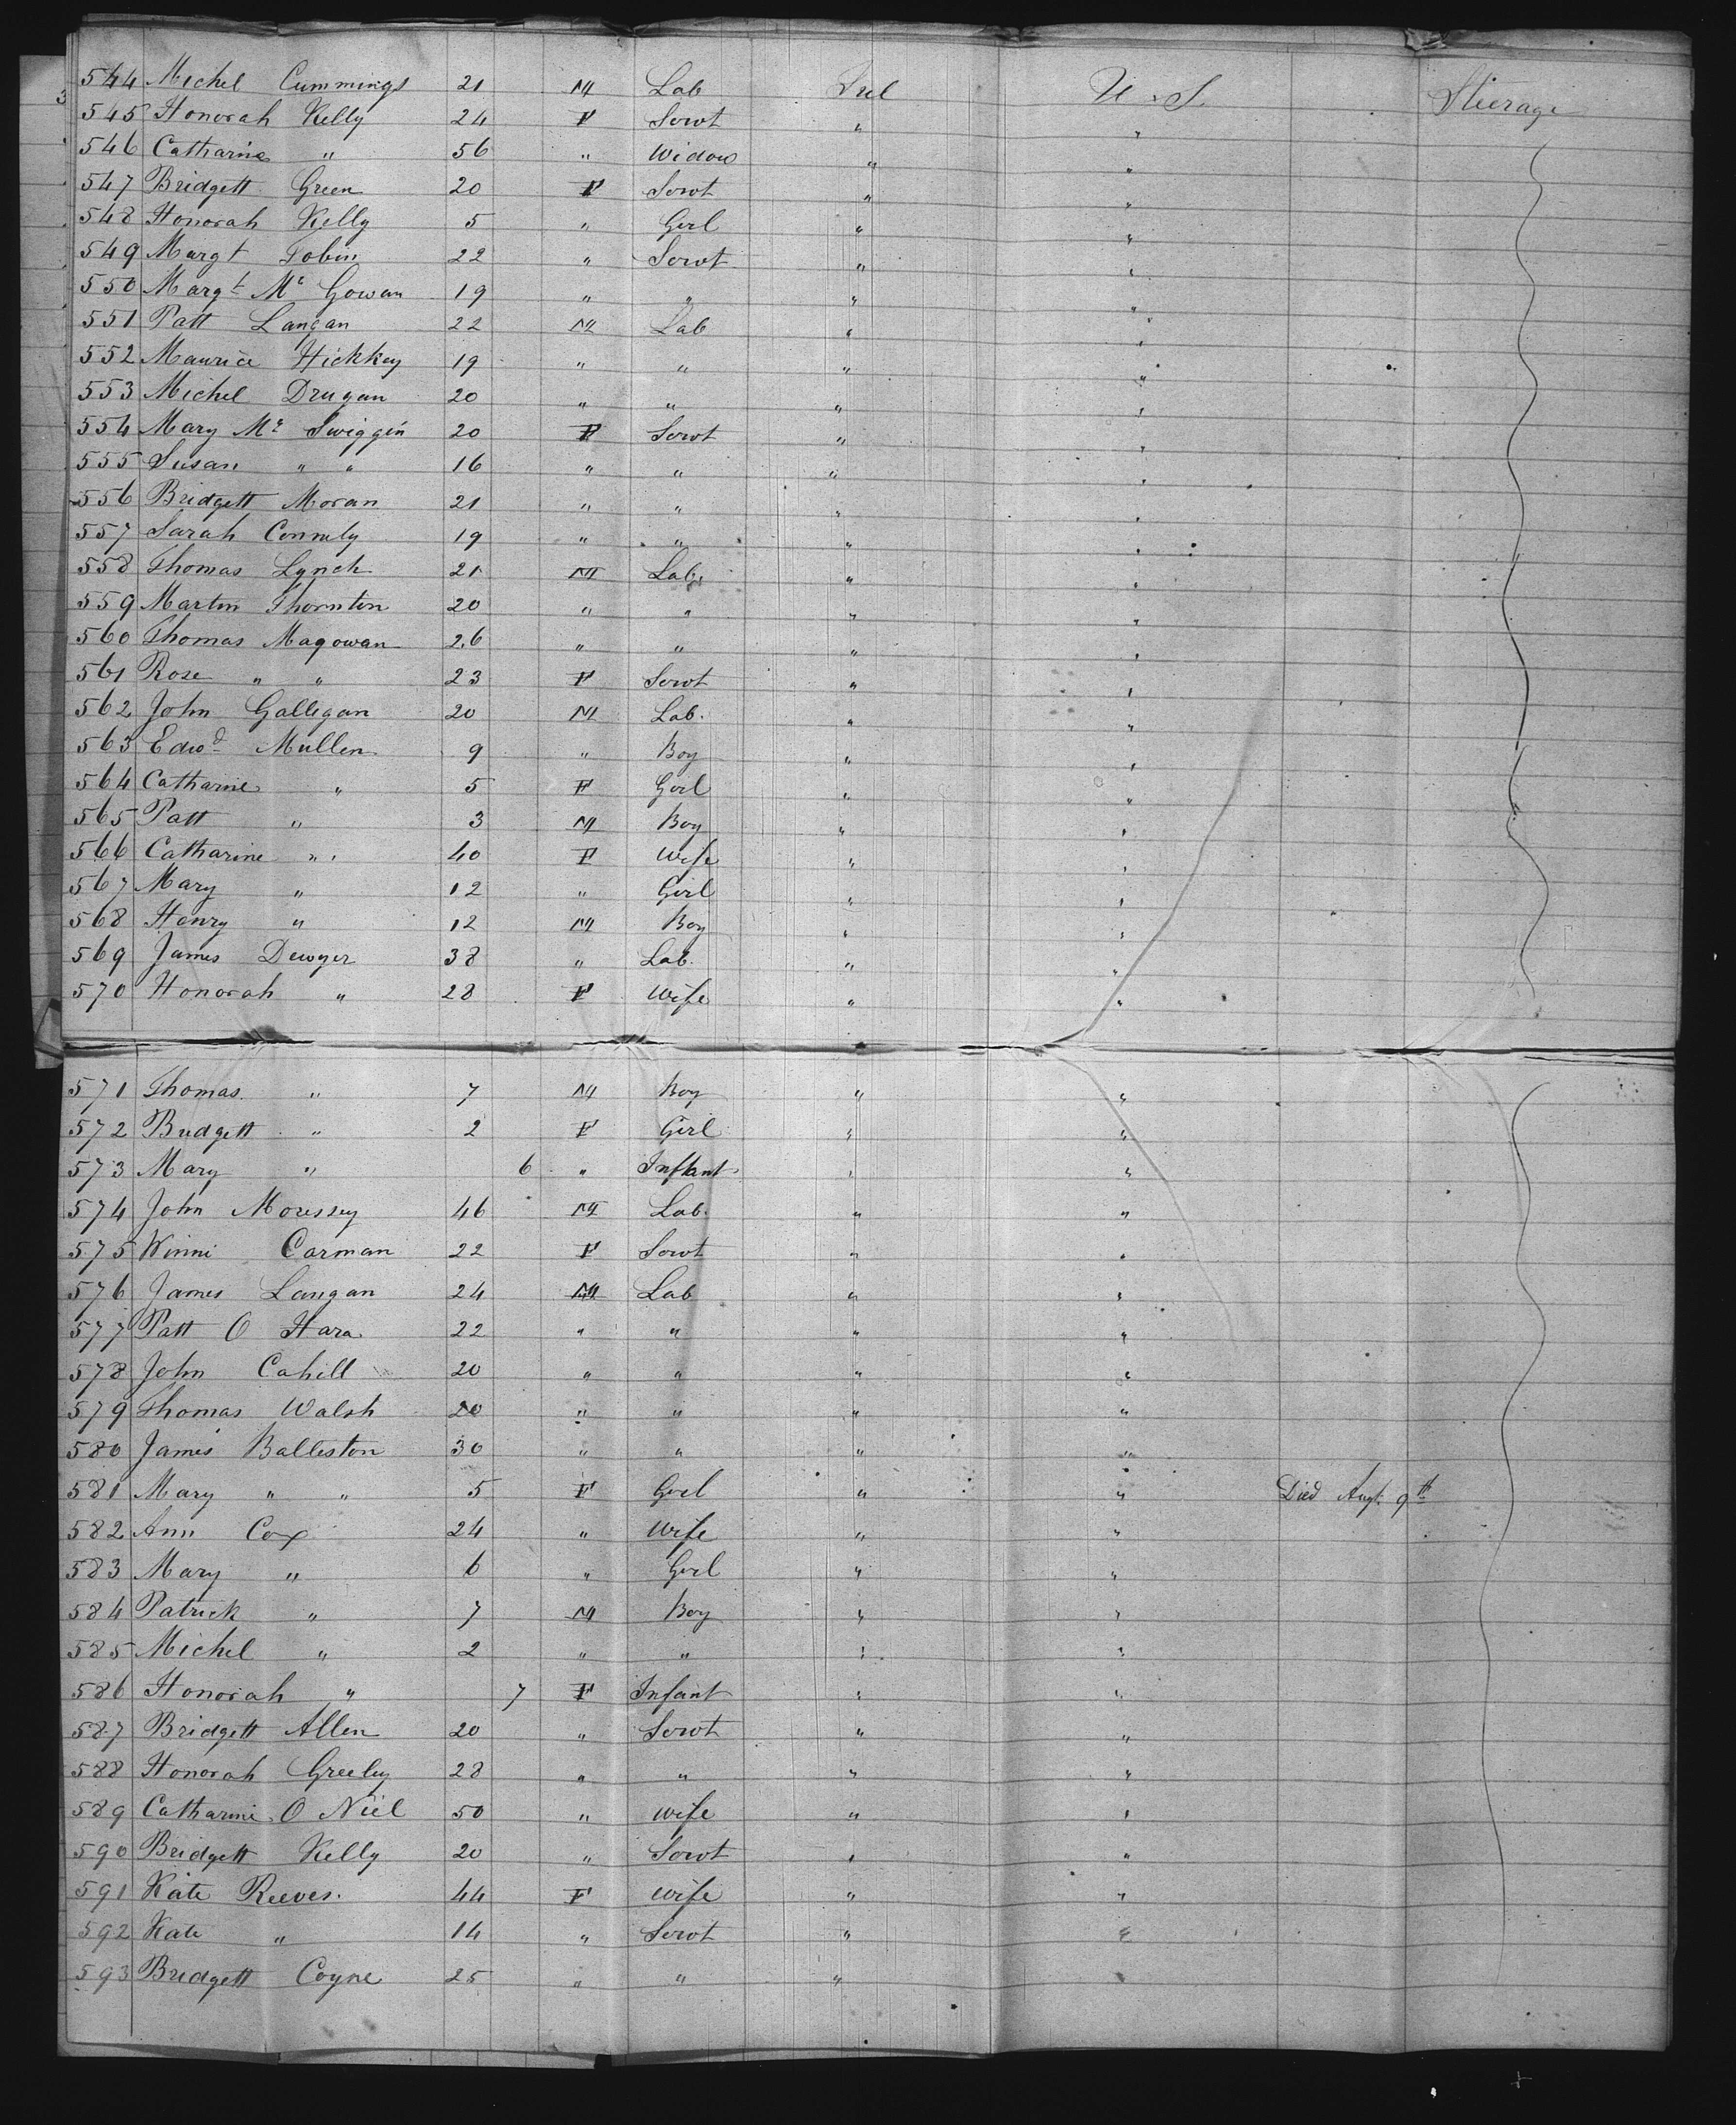 544 Michel Cummings 21 M Lab Irel U.S. Steerage
545 Honorah Kelly 24 F Servt " "
546 Catharine " 56 " Widow " "
547 Bridgett Green 20 F Servt " "
548 Honorah Kelly 5 " Girl " "
549 Margt Tobin 22 " Servt " "
550 Margt Mc Gowan 19 " " " "
551 Patt Langan 22 M Lab " "
552 Maurice Hickkey 19 " " " "
553 Michel Drugan 20 " " " "
554 Mary Mc Swiggin 20 F Servt " "
555 Susan " " 16 " " " "
556 Bridgett Moran 21 " " " "
557 Sarah Connely 19 " " " "
558 Thomas Lynch 21 M Lab. " "
559 Martin Thornton 20 " " " "
560 Thomas Magowan 26 " " " "
561 Rose " " 23 F Servt " "
562 John Galligan 20 M Lab. " "
563 Edwd Mullen 9 " Boy " "
564 Catharine " 5 F Girl " "
565 Patt " 3 M Boy " "
566 Catharine " 40 F Wife " "
567 Mary " 12 " Girl " "
568 Henry " 12 M Boy " "
569 James Dewyer 38 " Lab. " "
570 Honorah " 28 F Wife " "
571 Thomas " 7 M Boy " "
572 Bridgett " 2 F Girl " "
573 Mary " 6 " Infant " "
574 John Moressey 46 M Lab. " "
575 Winni Carman 22 F Servt " "
576 James Langan 24 M Lab " "
577 Patt O Hara 22 " " " "
578 John Cahill 20 " " " "
579 Thomas Walsh 20 " " " "
580 James Balleston 30 " " " "
581 Mary " " 5 F Girl " " Died Augt 9th
582 Ann Cox 24 " Wife " "
583 Mary " 6 " Girl " "
584 Patrick " 7 M Boy " "
585 Michel " 2 " " " "
586 Honorah " 7 F Infant " "
587 Bridgett Allen 20 " Servt " "
588 Honorah Greeley 28 " " " "
589 Catharine O Niel 50 " Wife " "
590 Bridgett Kelly 20 " Servt " "
591 Kate Reeves. 44 F Wife " "
592 Kate " 14 " Servt " "
593 Bridgett Coyne 25 " " " "